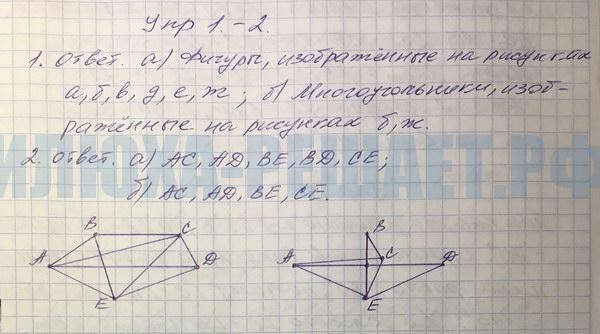 Упр 1.-2.
1. Ответ. а) Фигуры, изображённые на рисунках
а, б, в, д, е, ж; б) Многоугольники, изоб-
ражённые на рисунках б, ж.
2. Ответ. а) AC, AD, BE, BD, CE;
б) AC, AD, BE, CE.
ИЛЮХА-РЕШАЕТ.РФ
B C
A D
E
B
A C D
E